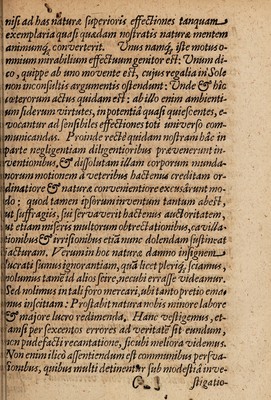 nisi ad has naturæ superioris effectiones tanquam
exemplaria quasi quædam nostratis naturæ mentem
animumq́; converterit. Unus namq́; iste motus o-
mnium mirabilium effectuum genitor est: Unum di-
co, quippe ab uno movente est, cujus regalia in Sole
non inconsultis argumentis ostendunt: Unde & hic
cæterorum actus quidam est: ab illo enim ambienti-
um siderum virtutes, in potentia quasi quiescentes, e-
vocantur ad sensibiles effectiones toti universo com-
municandas. Proinde recte quidam nostram hâc in
parte negligentiam diligentioribus prævenerunt in-
ventionibus, & dissolutam illam corporum munda-
norum motionem à veteribus hactenus creditam or-
dinatiore & naturæ convenientiore excusârunt mo-
do: quod tamen ipsorum inventum tantum abest,
ut suffragiis, sui servaverit hactenus auctoritatem,
ut etiam miseris multorum obtrectationibus, cavilla-
tionibus & irrisionibus etiã nunc dolendam sustineat
jacturam. Verum in hoc naturæ damno insignem
lucrati sumus ignorantiam, quâ licet pleriq́; sciamus,
nolumus tamẽ id alios scire, ne cubi errasse videamur.
Sed nolimus in tali foro mercari, ubi tanto pretio emi-
mus inscitiam: Prostabit natura nobis minore labore
& majore lucro redimenda. Hanc vestigemus, et-
iamsi per sexcentos errores ad veritatẽ sit eundum,
non pudefacti recantatione, sicubi meliora videmus.
Non enim ilicò assentiendum est communibus persua-
sionibus, quibus multi detinentur sub modestiâ inve-
stigatio-